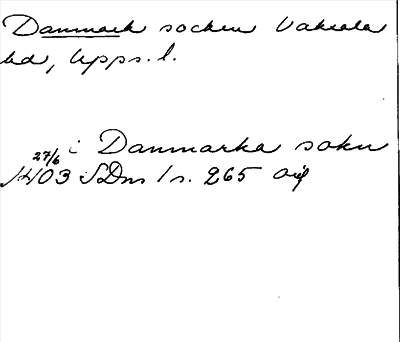 Danmark socken Vaksala
hd, Upps. l.
i Danmarka sokn
27/6 1403 SDns 1 s. 265 orig